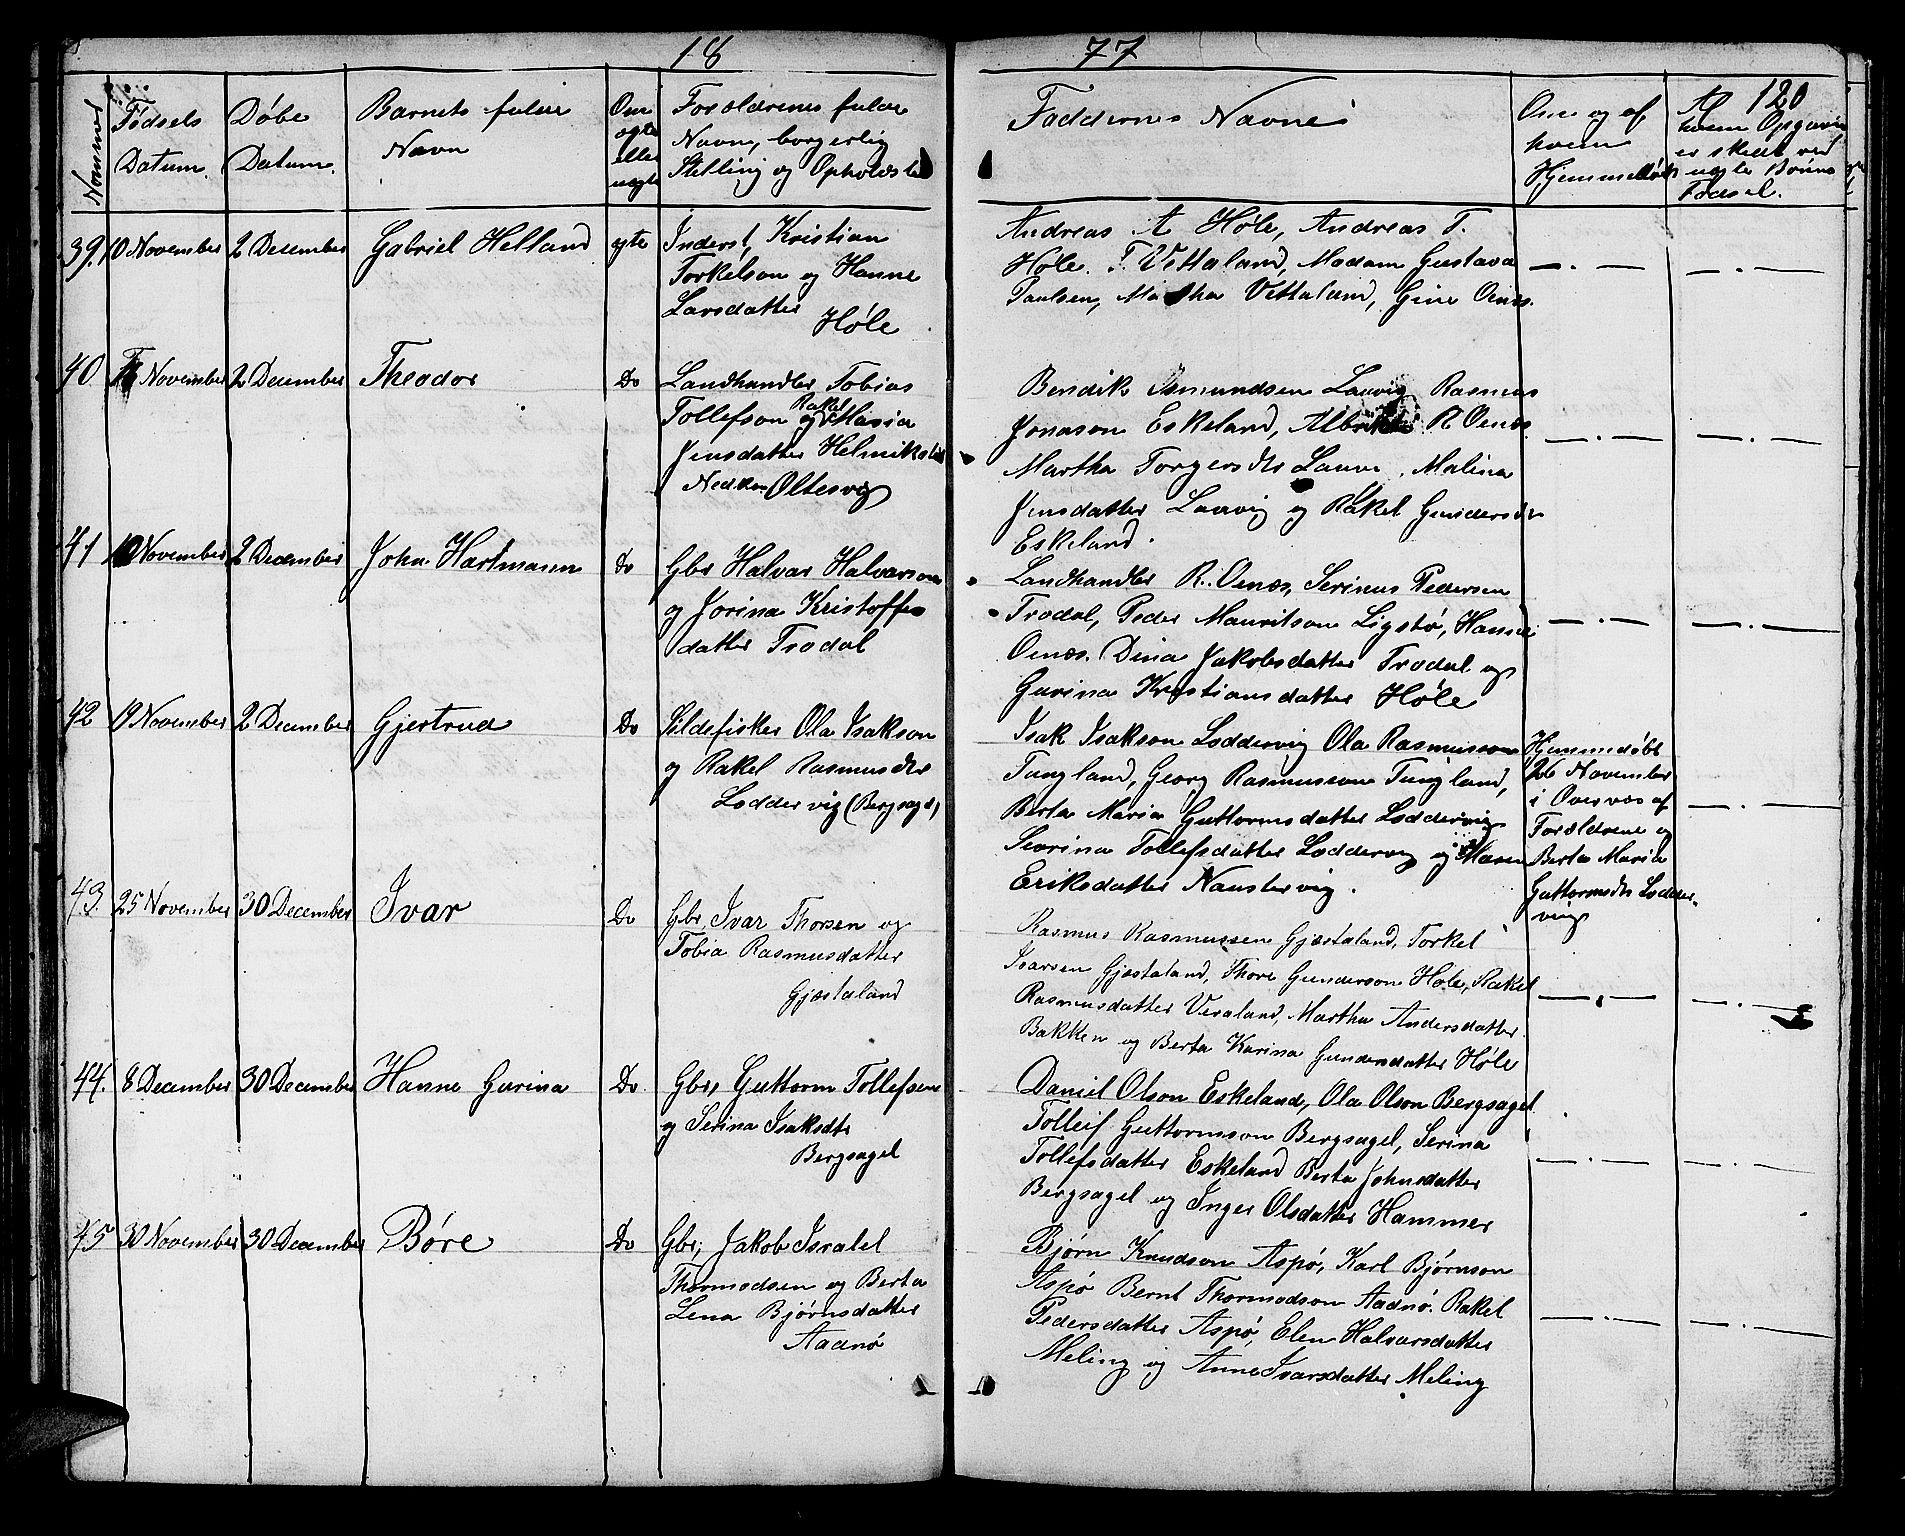 18 77
120
Nommer
Fødsels Datum.
Døbe Datum.
Barnets fulde Navn
Om ægte eller uægte
Forældrenes fulde
Navne, borgerlig
Stilling og Opholdsste
Faddernes Navne
Om og af
hvem
Hjemmedøbt
Af
hvem Opgaven
er skedt ved
uægte Børns
Fødsel.
39. 10 November 2 December Gabriel Helland ægte
Inderst, Kristian
Torkelson og Hanne
Larsdatter
Høle
Andreas A Høle, Andreas T.
Høle. T. Vettaland, Madam Gustava
Paulsen, Martha Vettaland, Gine Oenæs.
40 November 2 December Theodor Do
Landhandler Tobias
Tollefson og Rakel Maria
Jensdatter Helmikstøl
Oltesvig
Bendik Asmundsen Lauvig Rasmus
Jonason Eskeland, Albrikt R. Oenæs.
Martha Torgersdtr Lauvi, Malina
Jensdatter Lauvig og Rakel Gundersdr
Eskeland.
41 10 November 2 December John Hartmann Do
Gbr Halvar Halvarson
og Jorina Kristoffers
datter Trodal
Landhandler R. Oenæs, Serinus Pedersen
Trodal, Peder Mauritson Ligstø, Hanne
Oenæs. Dina Jakobsdatter Trodal og
Gurina Kristiansdatter Høle
42 19 November 2 December Gjertrud Do
Sildefisker Ola Isakson
og Rakel Rasmusdtr
Loddervig (Bergsagel)
Isak Isakson Loddervig Ola Rasmusson
Tungland, Georg Rasmusson Tungland,
Berta Maria Guttormsdatter Loddervig
Serina Tollefsdatter Loddervig og Maren
Eriksdatter Naustervig.
Hjemmedøbt
26 November
i Overvær af
Forældrene og
Berta Maria
Guttormsdtr Lodder-
vig
43. 25 November 30 December Ivar Do
Gbr. Ivar Thorsen og
Tobia Rasmusdatter
Gjæstaland
Rasmus Rasmussen Gjæstaland, Torkel
Ivarsen Gjæstaland, Thore Gunderson Høle, Rakel
Rasmusdatter Veraland, Martha Andersdatter
Bakken og Berta Karina Gundersdatter Høle
44. 8 December 30 December Hanne Gurina Do
Gbr, Guttorm Tollefsen
og Serina Isaksdtr
Bergsagel
Daniel Olson Eskeland, Ola Olson Bergsagel
Tolleif Guttormson Bergsagel, Serina
Tollefsdatter Eskeland Berta Johnsdatter
Bergsagel og Inger Olsdatter Hammer
45 30 November 30 December Børe Do
Gbr, Jakob Israel
Thormodsen og Berta
Lena Bjørnsdatter
Aadnø
Bjørn Knudson Aspø, Karl Bjørnson
Aspø Bernt Thormodson Aadnø. Rakel
Pedersdatter Aspø, Elen Halvarsdatter
Meling og Anne Ivarsdatter Meling